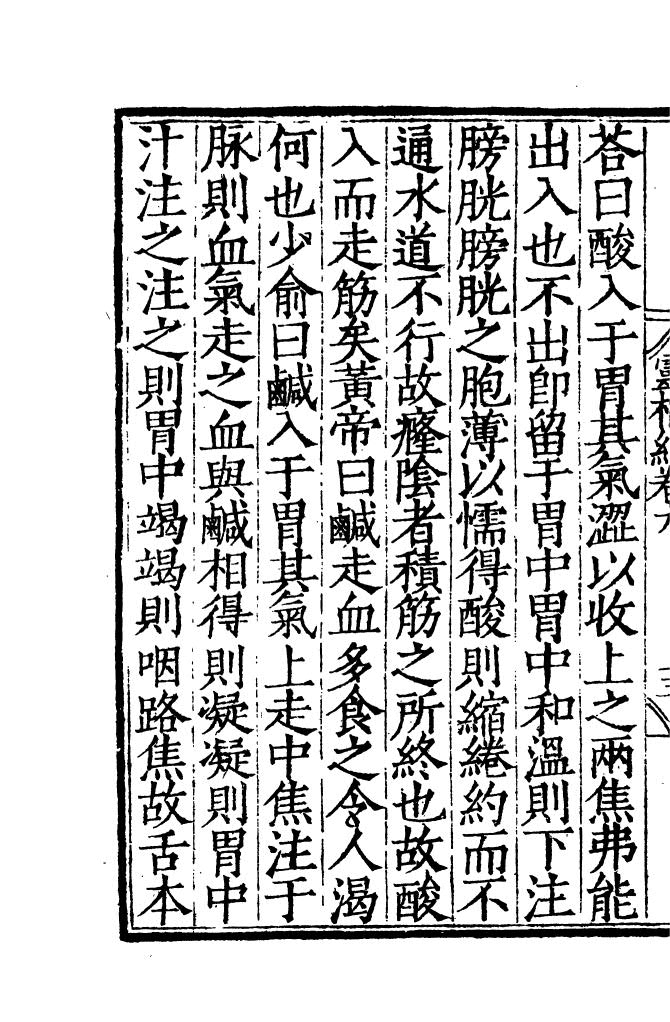 荅曰酸入于胃其氣澀以收上之兩焦弗能
出入也不出卽留于胃中胃中和溫則下注
膀胱膀胱之胞薄以懦得酸則縮綣約而不
通水道不行故癃陰者積筋之所終也故酸
入而走筋矣黃帝曰鹹走血多食之令人渴
何也少俞曰鹹入于胃其氣上走中焦注于
脉則血氣走之血與鹹相得則凝凝則胃中
汁注之注之則胃中竭竭則咽路焦故舌本